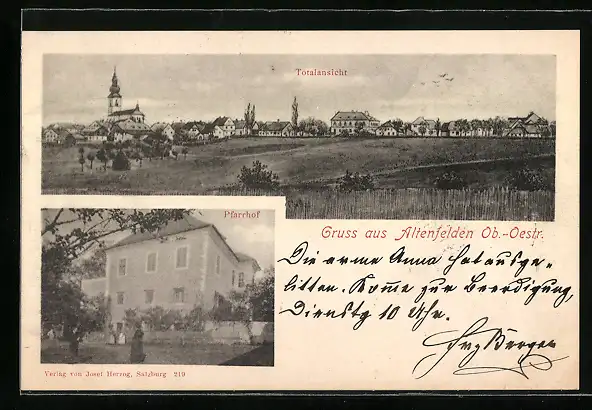 Totalansicht
Pfarrhof
Gruss aus Altenfelden Ob.-Oestr.
Die arme Anna hat ausge-
litten. Kome zur Beerdigung,
Dienstg 10 Uhr.
Verlag von Josef Herzog, Salzburg 219